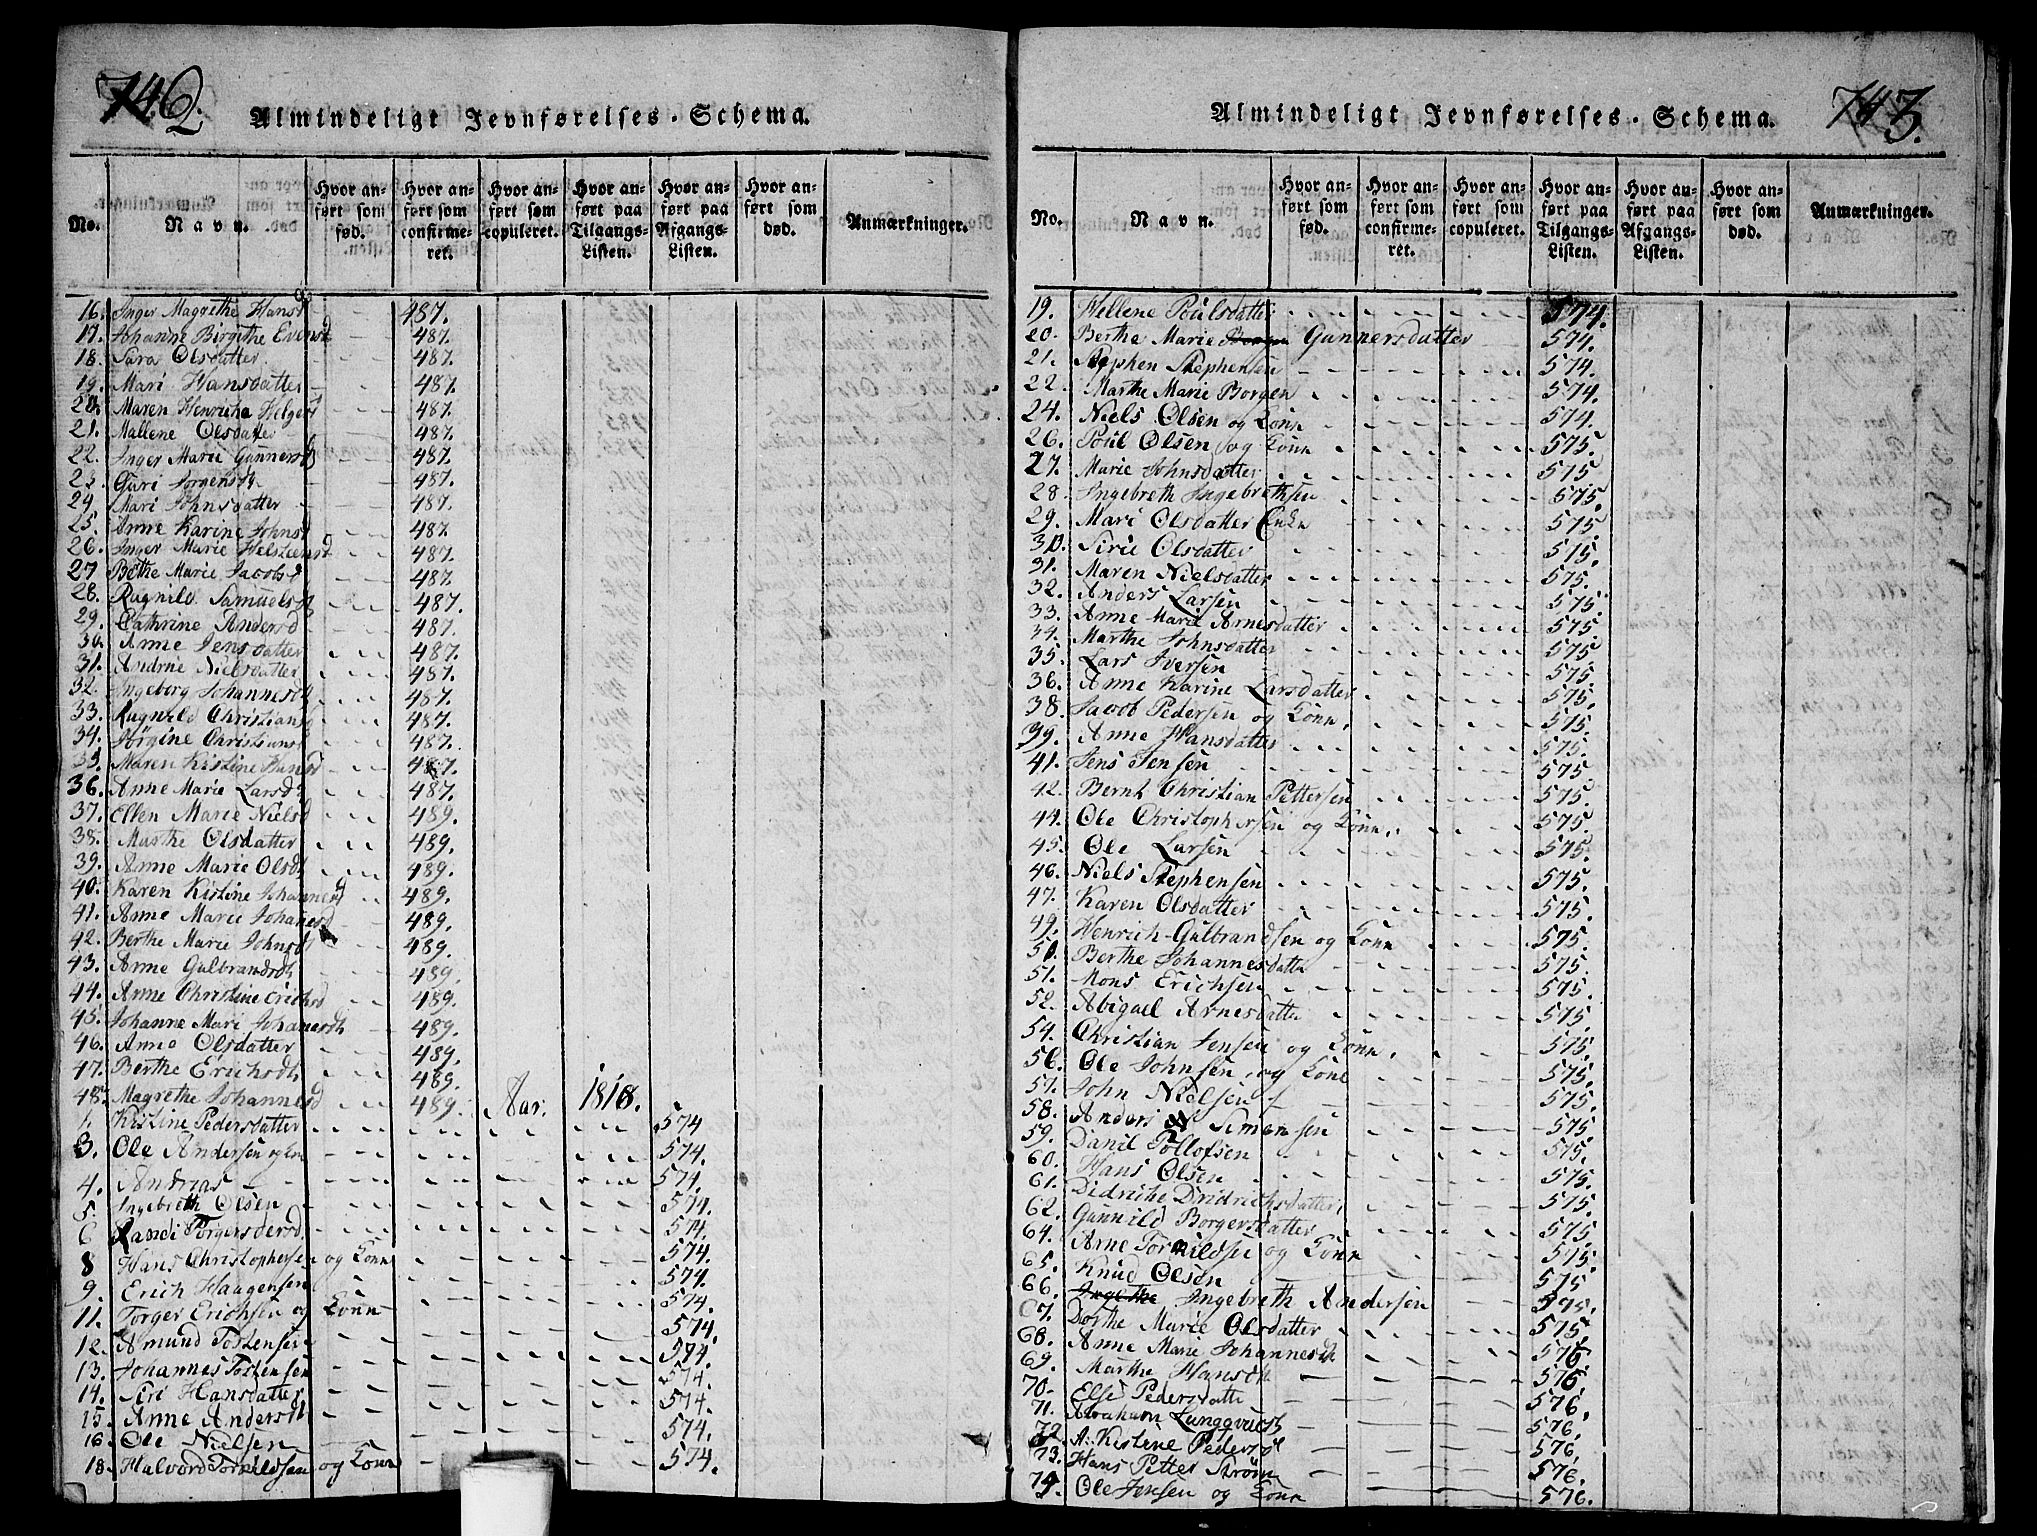 742.
Almindeligt Jevnførelses-Schema.
No. Navn. Hvor anført som fød. Hvor anført som confirmeret. Hvor anført som copuleret. Hvor anført paa Tilgangs-Listen. Hvor anført paa Afgangs-Listen. Hvor anført som død. Anmærkninger.
16. Inger Magrethe Hansd 487.
17. Johanne Birgithe Evensd 487.
18. Sara Olsdatter 487.
19. Mari Hansdatter 487.
20. Maren Henriche Helgers 487.
21. Mallene Olsdatter 487.
22. Inger Marie Gunnersd 487.
23. Guri Jorgensd 487.
24. Mari Johnsdatter 487.
25. Anne Karine Johnsd 487.
26. Inger Marie Helsteensd 487.
27 Bethe Marie Jacobsd 487.
28. Ragnild Samuelsd 487.
29. Cathrine Andersd 487.
30. Anne Jensdatter 487.
31. Andrne Nielsdatter 487.
32. Ingeborg Johannesd 487.
33. Ragnild Christiansd 487.
34. Jørgine Christiansd 487.
35. Maren Kistine Hansd 487.
36. Anne Marie Larsd 487.
37. Ellen Marie Nielsd 489.
38. Marthe Olsdatter 489.
39. Anne Marie Olsdt 489.
40. Karen Kistine Johannesd 489.
41. Anne Marie Johanesd 489.
42. Berthe Marie Johnsd 489.
43. Anne Gulbrandsdt 489.
44. Anne Christine Erichsd 489.
45. Johanne Mari Johanesdt 489.
46. Anne Olsdatter 489.
47. Berthe Erichsdt 489.
48. Magrethe Johannesd 489. Aar. 1818.
1. Kistine Pedersdatter 574
3. Ole Andersen og 574.
4. Andreas 574.
5. Ingebreth Olsen 574.
6 Randi Torgersdersd 574.
8 Hans Christophersen og Konn 574.
9. Erich Haagensen 574.
11. Torger Erichsen og Konn 574.
12. Amund Tostensen 574.
13. Johannes Tostensen 574.
14. Siri Hansdatter 574.
15. Anne Andersdt 574.
16. Ole Nielsen 574.
18. Halvord Torkildsen og Konn 574.
743.
Almindeligt Jevnførelses-Schema.
No. Navn. Hvor anført som fød. Hvor anført som confirmeret. Hvor anført som copuleret. Hvor anført paa Tilgangs-Listen. Hvor anført paa Afgangs-Listen. Hvor anført som død. Anmærkninger.
19. Hellene Poulsdatter 574.
20. Berthe Marie Gunnersdatter 574.
21. Stephen Stephensen 574.
22. Marthe Marie Borgen 574.
24. Niels Olsen og Konn 574.
26. Poul Olsen og Konn 575.
27. Marie Johnsdatter 575
28. Ingebreth Ingebrethsen 575.
29. Mari Olsdatter Enke 575.
30. Sirie Olsdatter 575.
31. Maren Nielsdatter 575.
32. Anders Larsen 575.
33. Anne Marie Arnesdatter 575.
34. Marthe Johnsdatter 575
35. Lars Iversen 575.
36. Anne Karine Larsdatter 575.
38. Jacob Pedersen og Konn, 575.
39. Anne Hansdatter 575.
41. Jens Jensen 575
42. Bernt Christian Pettersen 575.
44. Ole Christophersen og Konn, 575.
45. Ole Larsen 575.
46. Niels Stephensen 575.
47. Karen Olsdatter 575.
49. Henrich Gulbrandsen og Konn 575.
50. Berthe Johannesdatter 575.
51. Mons Erichsen 575.
52. Abigael Arnesdatter 575.
54. Christian Jensen og Konn, 575.
56. Ole Johnsen og Kone 575.
57. John Nielsen 575.
58. Anders Simensen 575
59. Danil Tollofsen 575.
60. Hans Olsen 575.
61. Didriche Dridrichsdatter, 575.
62. Gunnild Borgersdatter 575.
64. Arne Torkildsen og Konn 575.
65. Knud Olsen 575
66. Ingebreth Andersen 575.
67. Dorthe Marie Olsdatter 575.
68. Anne Marie Johannesdt 576
69. Marthe Hansdt 576.
70. Else Pedersdatter 576.
71. Abraham Lungqvist 576.
72. A. Kistine Pedersd 576.
73. Hans Petter Strøm 576.
75. Ole Jensen og Konn 576.